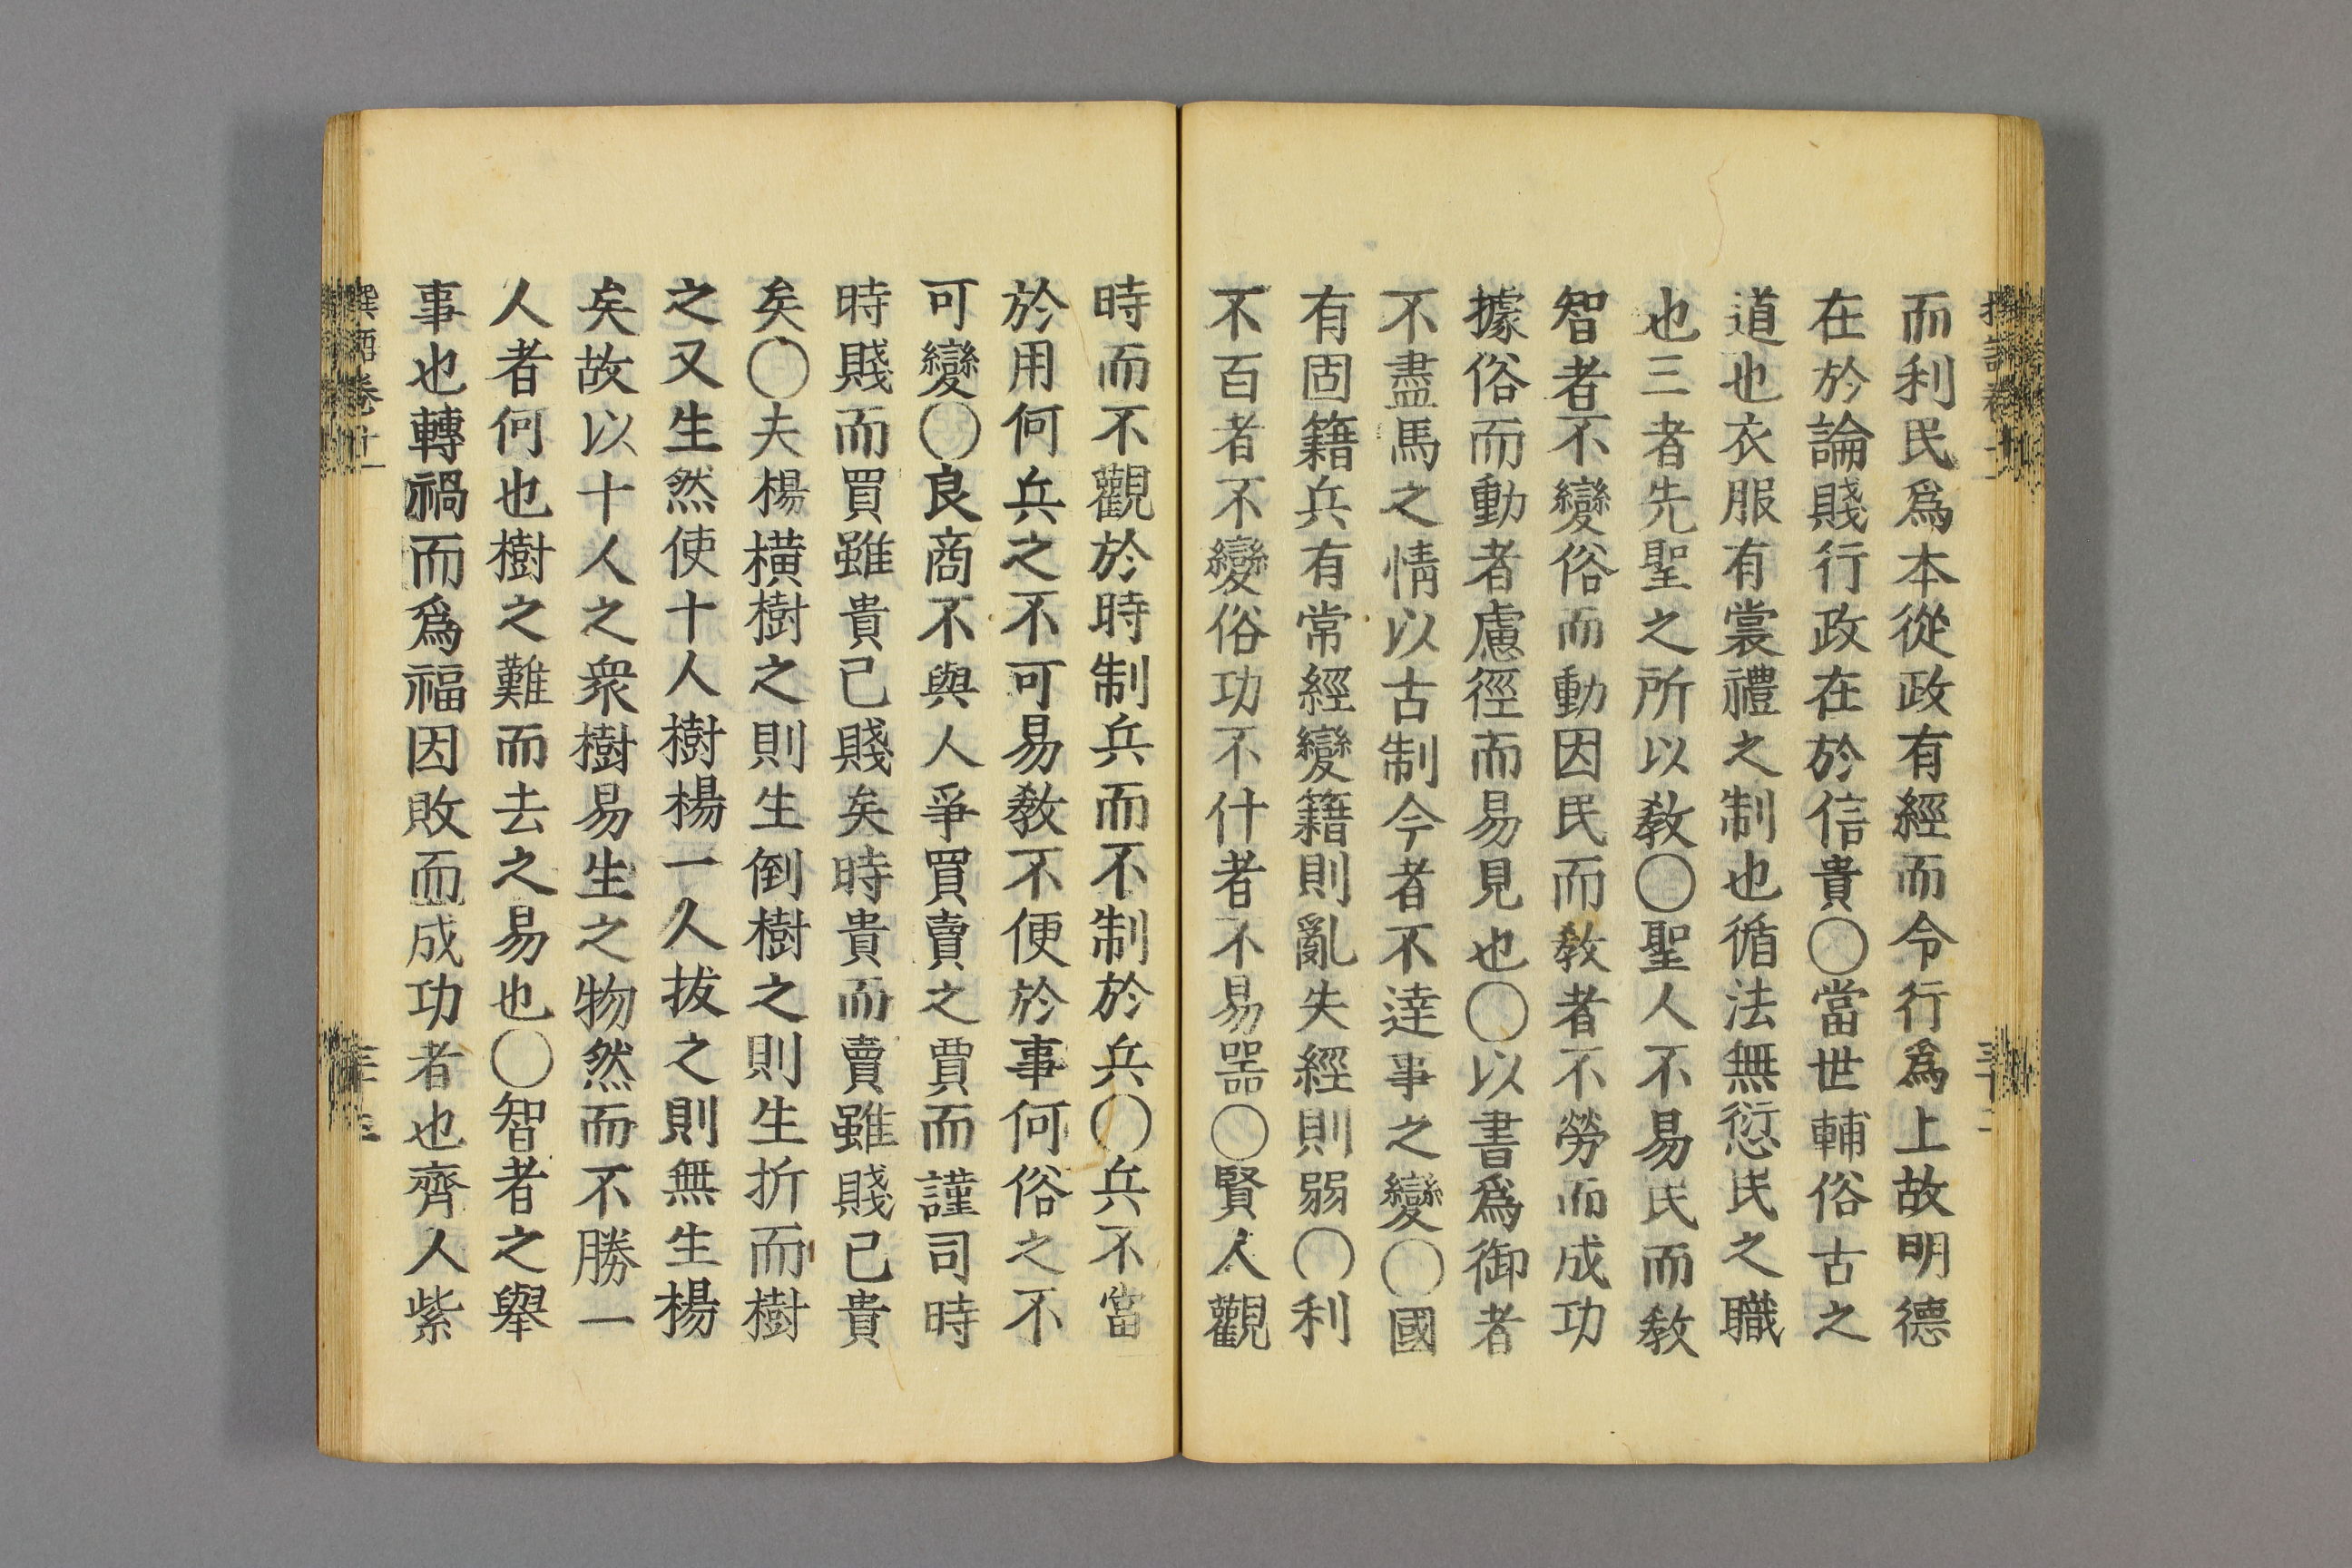 而利民爲本從政有經而令行爲上故明德
在於論賤行政在於信貴〇當世輔俗古之
道也衣服有裳禮之制也循法無愆民之職
也三者先聖之所以教〇聖人不易民而教
智者不變俗而動因民而教者不勞而成功
據俗而動者慮徑而易見也〇以書爲御者
不盡馬之情以古制今者不達事之變〇國
有固籍兵有常經變籍則亂失經則弱〇利
不百者不變俗功不什者不易器〇賢人觀
時而不觀於時制兵而不制於兵〇兵不當
於用何兵之不可易教不便於事何俗之不
可變〇良商不與人爭買賣之賈而謹司時
時賤而買雖貴已賤矣時貴而賣雖賤已貴
矣〇夫楊橫樹之則生倒樹之則生折而樹
之又生然使十人樹楊一人拔之則無生楊
矣故以十人之衆樹易生之物然而不勝一
人者何也樹之難而去之易也〇智者之舉
事也轉禍而爲福因敗而成功者也齊人紫
語卷十一